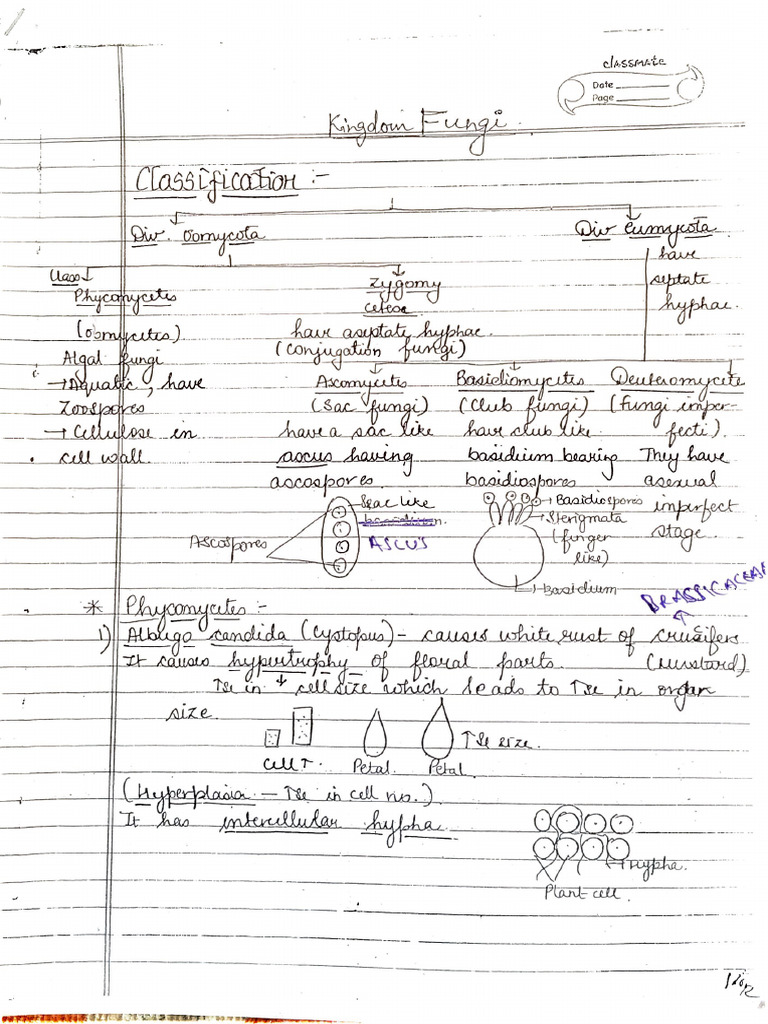 classmate
Date
Page
Kingdom Fungi.
Classification :-
Div. Oomycota
Div Eumycota
have
septate
hyphae.
Class
Phycomycetes
(oomycetes)
Algal fungi
→Aquatic, have
Zoospores
→ Cellulose in
cell wall
Zygomy
cetese
have aseptate hyphae.
(conjugation fungi)
Ascomycetes
(Sac fungi)
have a sac like
ascus having
ascospores.
Basidiomycetes
(Club fungi)
have club like
basidium bearing
basidiospores
Deuteromycete
(Fungi imper-
fecti).
They have
asexual
imperfect
stage.
Sac like
ASCUS
Ascospores
Basidiospores
Sterigmata
(finger
like)
Basidium
BRASSICACEAE
* Phycomycetes :-
1) Albugo candida (Cystopus) - causes white rust of crucifers
It causes hypertrophy of floral parts. (mustard)
↑se in cell size which leads to ↑se in organ
size.
↑se size.
Cell ↑. Petal. Petal.
(Hyperplasia - ↑se in cell nos.)
It has intercellular hypha.
Hypha.
Plant cell.